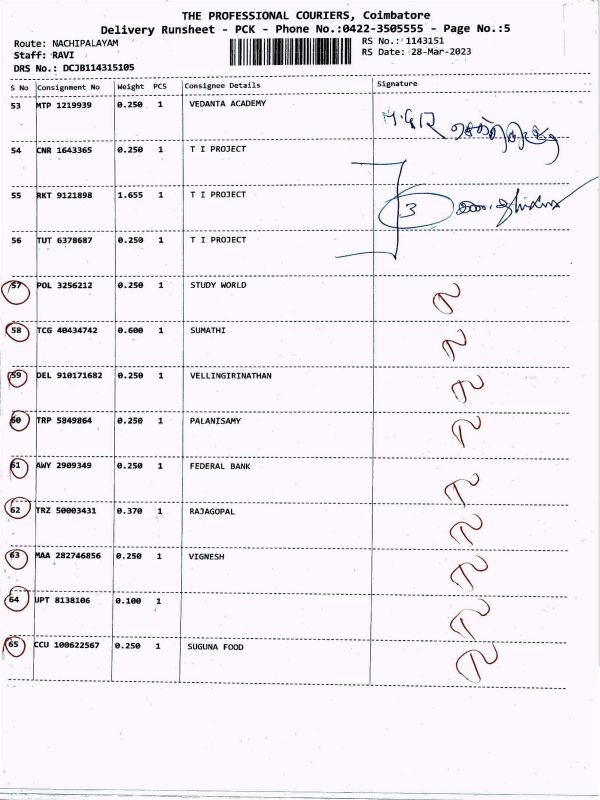 THE PROFESSIONAL COURIERS, Coimbatore
Delivery Runsheet - PCK - Phone No.:0422-3505555 - Page No.:5
Route: NACHIPALAYAM
RS No.: 1143151
Staff: RAVI
RS Date: 28-Mar-2023
DRS No.: DCJB114315105
S No Consignment No Weight PCS Consignee Details Signature
53 MTP 1219939 0.250 1 VEDANTA ACADEMY
54 CNR 1643365 0.250 1 T I PROJECT
55 RKT 9121898 1.655 1 T I PROJECT 3
56 TUT 6378687 0.250 1 T I PROJECT
57 POL 3256212 0.250 1 STUDY WORLD
58 TCG 40434742 0.600 1 SUMATHI
59 DEL 910171682 0.250 1 VELLINGIRINATHAN
60 TRP 5849864 0.250 1 PALANISAMY
61 AWY 2909349 0.250 1 FEDERAL BANK
62 TRZ 50003431 0.370 1 RAJAGOPAL
63 MAA 282746856 0.250 1 VIGNESH
64 UPT 8138106 0.100 1
65 CCU 100622567 0.250 1 SUGUNA FOOD